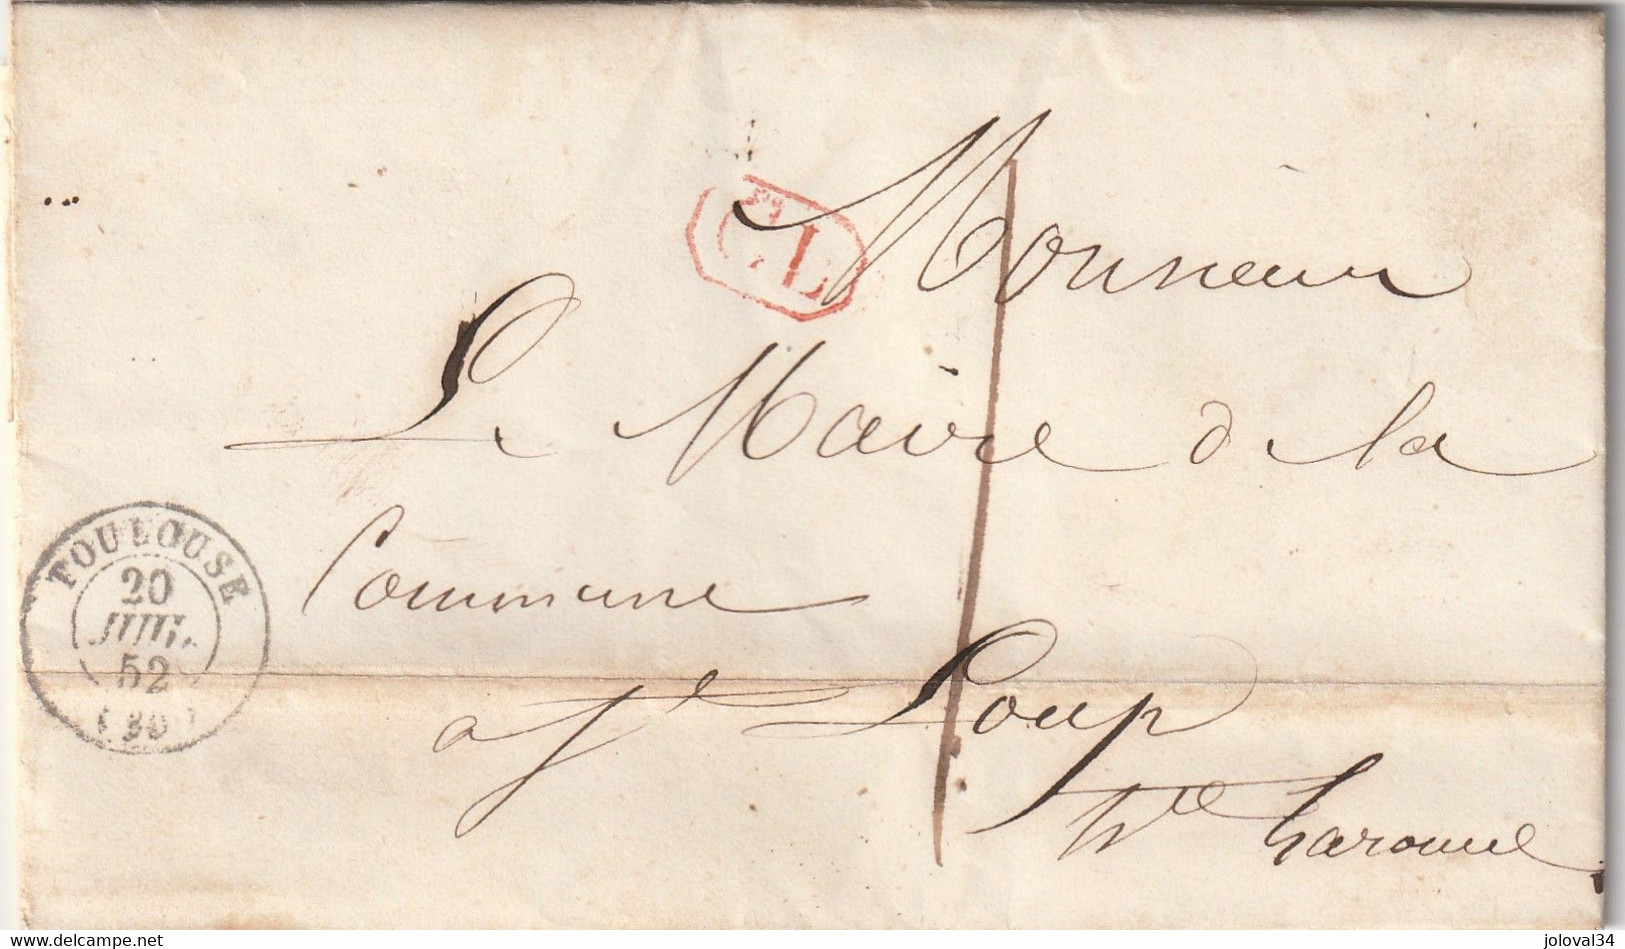 C.L
Monsieur
Le Maire de la
Commune
a St Loup
hte Garonne
TOULOUSE
20
JUIL.
52
(30)
www.delcampe.net
joloval34